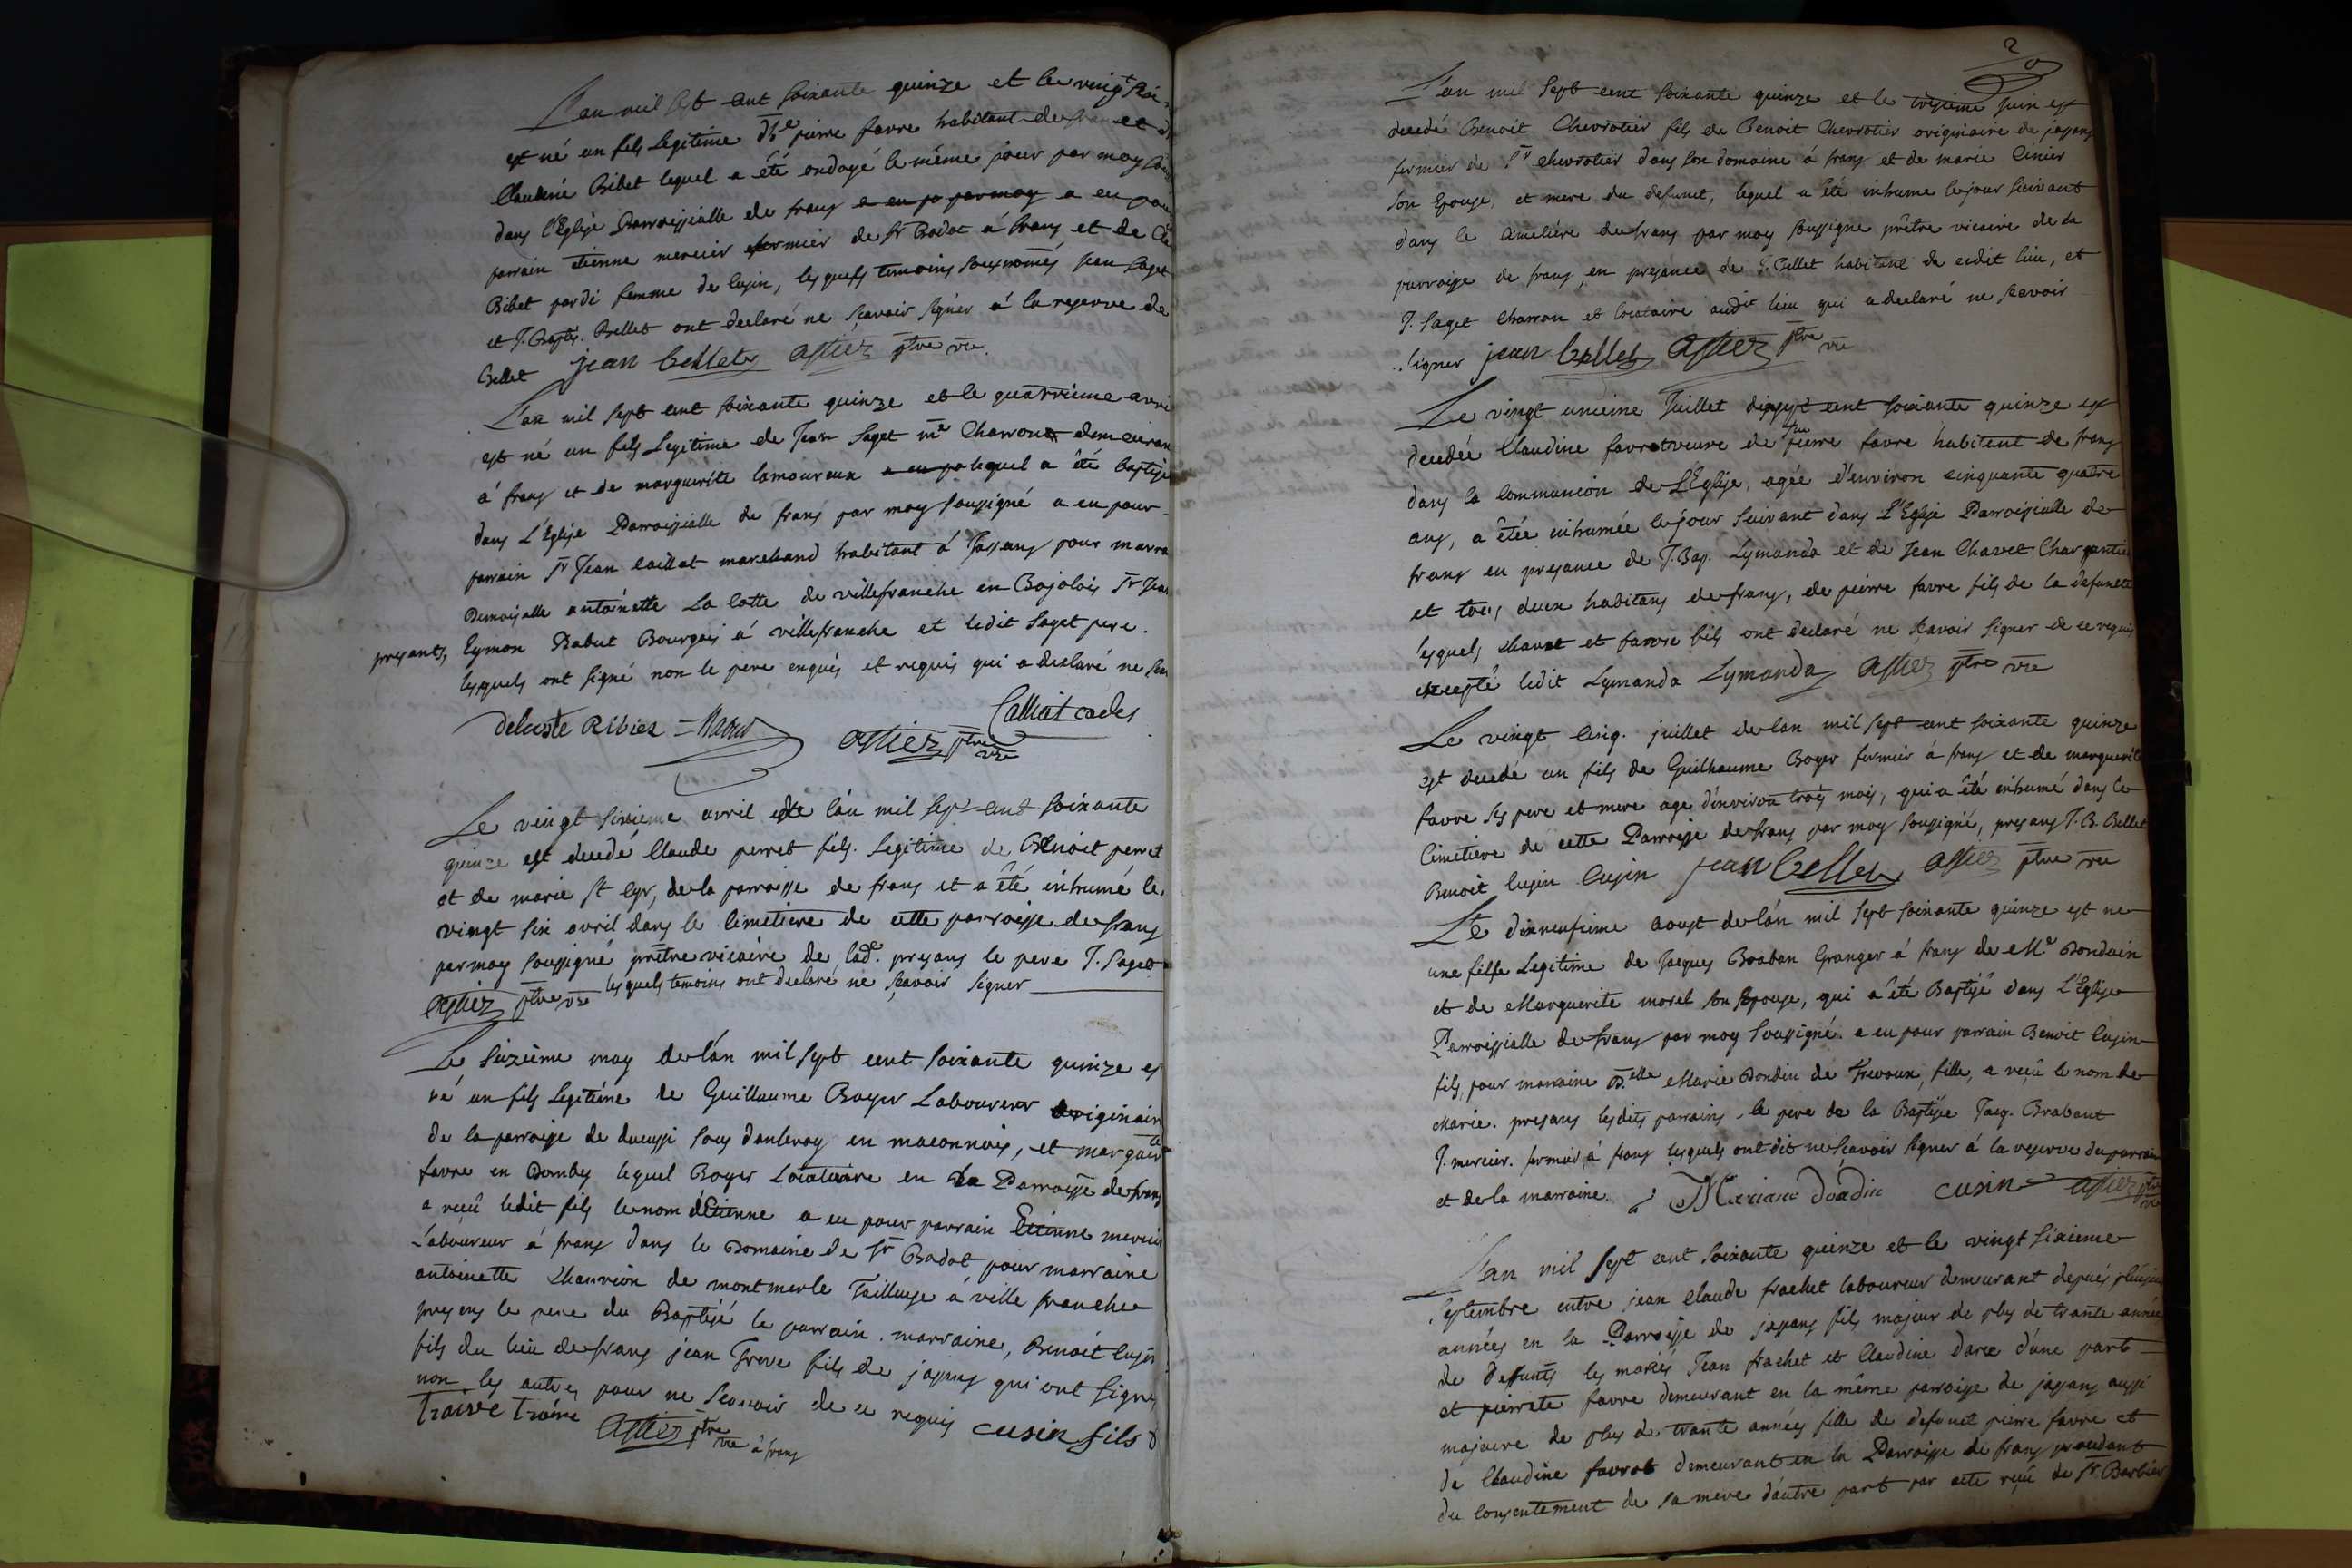 L'an mil sept cent soixante quinze et le vingt
est né un fils Legitime de pierre favre habitant de frans et de
Claudine Bibet lequel a été ondoyé le même jour par moy
dans l'Eglise Parroissialle de frans a eu po par moy a eu pour
parrain etienne mercier fermier de Sr Badot á frans et de
Bibet pardi femme de cusin, lesquels temoins sousnomés jean saget
et J. Bapte. Bellet ont declaré ne sçavoir signer á la reserve de
Bellet jean bellet astier ptre vre.
L'an mil sept cent soixante quinze et le quatrieme avri
est né un fils Legitime de Jean Saget me Charron demeuran
á frans et de marguerite lamoureux a eu po lequel a été baptisé
dans L'Eglise Parroissialle de frans par moy soussigné a eu pour
parrain Sr Jean caillat marchand habitant á Jassans pour marra
Demoiselle antoinette La latte de villefranche en Bojolois Sr Jean
presants, Eymon Rabut Bourgois á villefranche et ledit Saget pere.
lesquels ont signé non le pere enquis et requis qui a declaré ne sca
astier ptre vre
Le vingt sixieme avril de l'an mil sept cent soixante
quinze est decedé Claude perret fils Legitime de Benoit perret
et de marie st Cyr, de la parroisse de frans et a été inhumé le
vingt six avril dans le cimetiere de cette parroisse de frans
par moy soussigné prêtre vicaire de lade. presans le pere J. Saget
astier ptre vre lesquels temoins ont declaré ne sçavoir signer
Le sixzieme may de l'an mil sept cent soixante quinze es
né un fils Legitime de Guillaume Boyer Laboureur originair
de la parroisse de sous en maconnois, et marguerte
favre en Dombes lequel Boyer Locataire en la Parroisse de frans
a reçû ledit fils le nom d'Etienne a eu pour parrain Etienne mercier
Laboureur á frans dans le Domaine de Sr Badot pour marraine
antoinette Chanrion de montmerle Tailleuse á ville franche
presens le pere du Baptisé le parrain. marraine, Benoit Cusin
fils du lieu de frans jean Treve fils de jassans qui ont signé
non les autres pour ne scavoir de ce requis cusin fils
Traive astier ptre vre á frans
2
L'an mil sept cent soixante quinze et le treisieme juin est
decedé Benoit Chevrotier fils de Benoit Chevrotier originaire de jassans
fermier de Sr chevrotier dans son domaine á frans et de marie Cinier
son Epouse, et mere du defunct, lequel a été inhumé le jour suivant
dans le cimetiére de frans par moy soussigné prêtre vicaire de la
parroisse de frans, en presance de J. Bellet habitant de cedit lieu, et
J. Saget charron et locataire audit lieu qui a declaré ne scavoir
signer jean bellet astier ptre vre
Le vingt unieme Juillet dixsept cent soixante quinze est
decedée Claudine favrat veuve de feu pierre favre habitant de frans
dans la communion de L'Eglise, agée d'environ cinquante quatre
ans, a étée inhumée le jour suivant dans L'Eglise Parroissialle de
frans en presance de J. Bap. Lymanda et de Jean Chavet Charpantie
et tous deux habitans de frans, de pierre favre fils de la defuncte
lesquels chavat et favre fils ont declaré ne scavoir signer de ce requis
excepté ledit Lymanda Lymanda astier ptre vre
Le vingt cinq. juillet de l'an mil sept cent soixante quinze
est decedé un fils de Guilhaume Boyer fermier á frans et de marguerite
favre ses pere et mere agé d'environ trois mois, qui a été inhumé dans le
Cimetiere de cette Parroisse de frans par moy soussigné, presans J. B. Bellet
Benoit cusin Cusin jean bellet astier ptre vre
Le dixneufieme aoust de l'an mil sept soixante quinze est ne
une fille Legitime de Jacques Braban Granger á frans de Mr Dondain
et de Marguerite morel son Epouse, qui a été Baptisé dans L'Eglise
Parroissialle de frans par moy soussigné. a eu pour parrain Benoit Cusin
fils, pour marraine Delle Marie Dondin de Trevoux, fille, a reçû le nom de
Marie. presans lesdits parrains, le pere de la Baptisée Jacq. Brabant
J. mercier. fermier á frans lesquels ont dit ne scavoir signer á la reserve du parrain
et de la marraine. Mariane dondin cusin astier ptre vre
L'an mil sept cent soixante quinze et le vingt sixieme
septembre entre jean claude frachet laboureur demeurant depuis plusieu
années en la Parroisse de jassans fils majeur de plus de trante année
de deffunts les mariés Jean frachet et Claudine dare d'une part
et pierrete favre demeurant en la même parroisse de jassans aussi
majeure de plus de trante années fille de defunct pierre favre et
de Claudine favrat demeurant en la Parroisse de frans procedant
du consentement de sa mere d'autre part par acte reçû de Sr Barbier